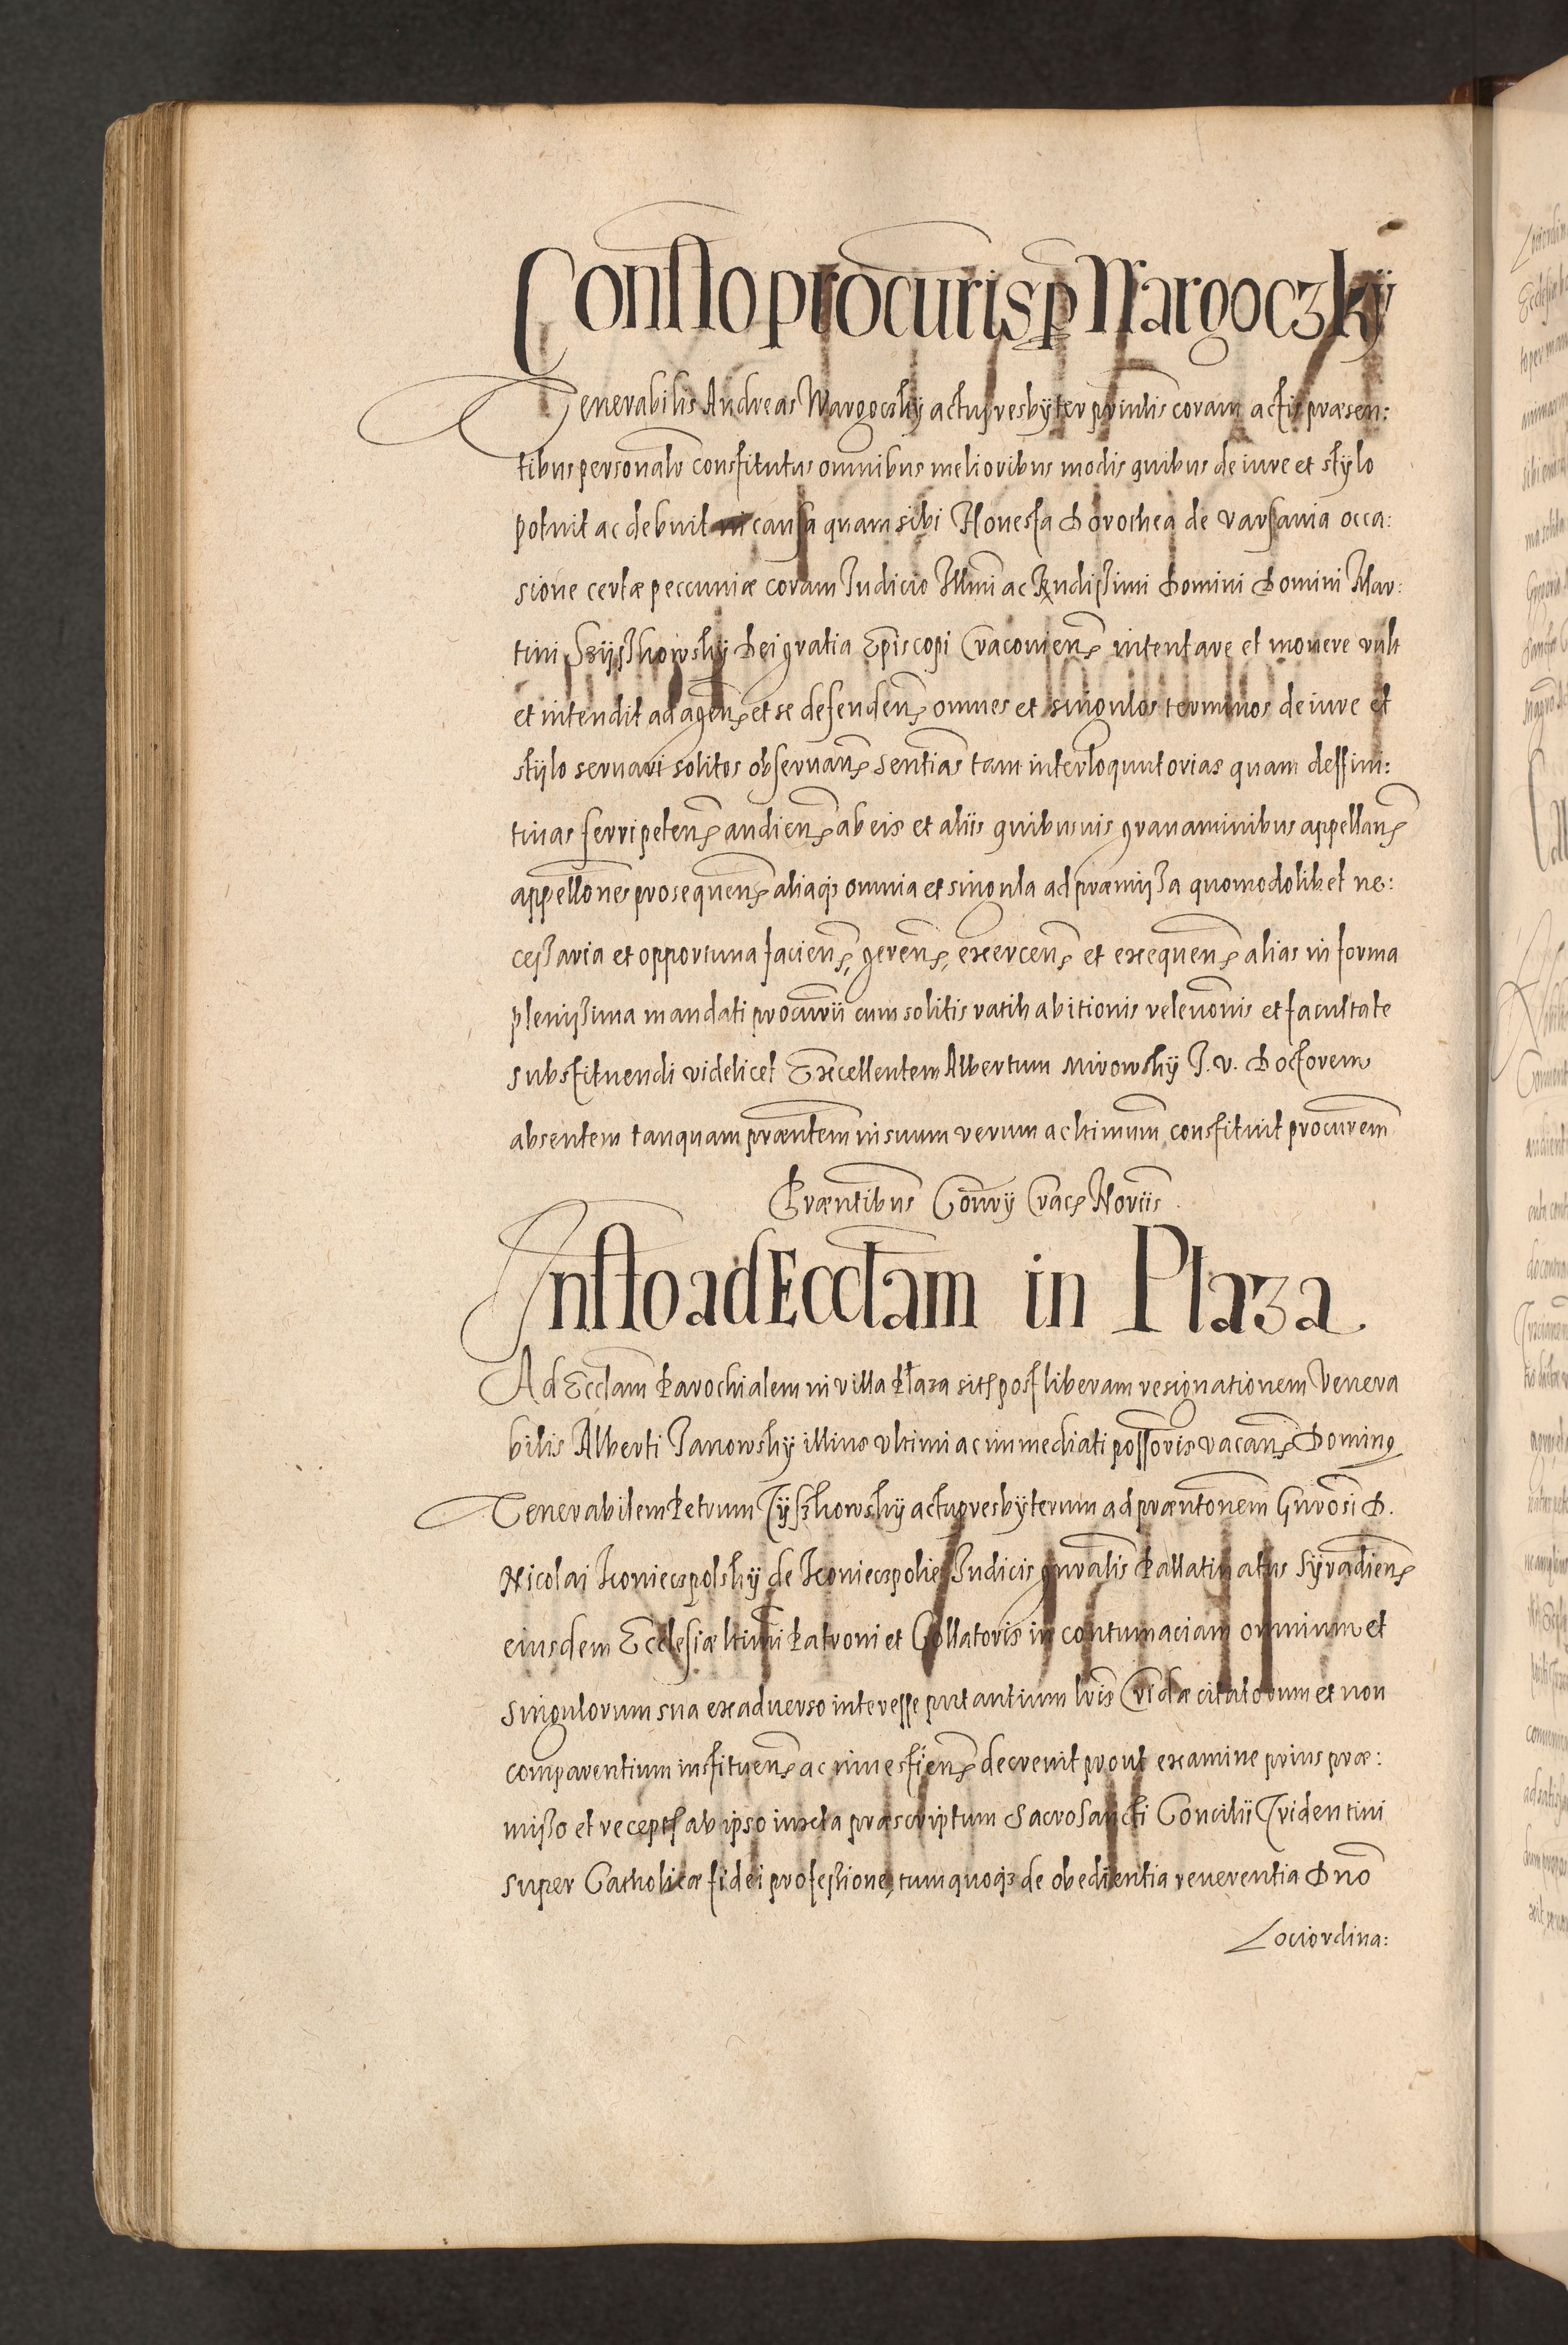 Constto procuris p Wargoczkÿ
Venerabilis Andreas Wargoczkÿ actupresbÿter priutis coram actis præsen:
tibus personalr constitutus omnibus melioribus modis quibus de iure et stÿlo
potuit ac debuit in causa quam sibi Honesta Dorothea de Varsauia occa:
sione certæ peccuniæ coram Judicio Illmi ac Rndissimi Domini Domini Mar:
tini Szÿszkowskÿ Dei gratia Episcopi Cracouien intentare et mouere vult
et intendit ad agen et se defenden omnes et singulos terminos de iure et
stÿlo seruari solitos obseruan sentias tam interloquutorias quam deffini:
tiuas ferri peten audien ab eis et aliis quibusuis grauaminibus appellan
appellones prosequen aliaqs omnia et singula ad præmissa quomodolibet ne:
cessaria et opportuna facien, geren, exercen et exequen alias in forma
plenissima mandati procurii cum solitis ratihabitionis releuonis et facultate
substituendi videlicet Excellentem Albertum Mirowskÿ J. V. Doctorem
absentem tanquam præntem in suum verum ac ltimum constituit procurem
Præntibus Conrÿ Crac Noriis.
Instto ad Ecclam in Plaza
Ad Ecclam Parochialem in villa Płaza sit post liberam resignationem Venera
bilis Alberti Janowskÿ illius vltimi ac immediati possoris vacan Dominq
Venerabilem Petrum Tÿszkowskÿ actupresbÿterum ad præntonem Gnrosi D.
Nicolai Koniecpolskÿ de Koniecpolie Judicis gnralis Pallatinatus Sÿradien
eiusdem Ecclesiæ ltimi Patroni et Collatoris in contumaciam omnium et
singulorum sua ex aduerso interesse putantium lris Cridæ citatorum et non
comparentium instituen ac inuestien decreuit prout examine prius præ:
misso et recept ab ipso iuxta præscriptum Sacrosancti Concilii Tridentini
super Catholicæ fidei professione, tum quoqs de obedientia reuerentia Dno
Loci ordina: